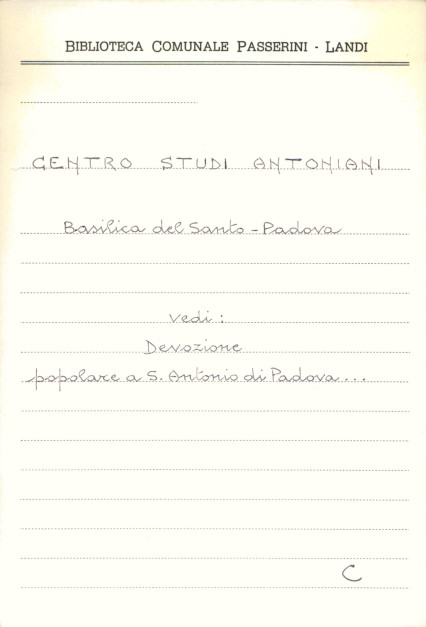 BIBLIOTECA COMUNALE PASSERINI - LANDI
CENTRO STUDI ANTONIANI
Basilica del Santo - Padova
vedi:
Devozione
popolare a S. Antonio di Padova...
C